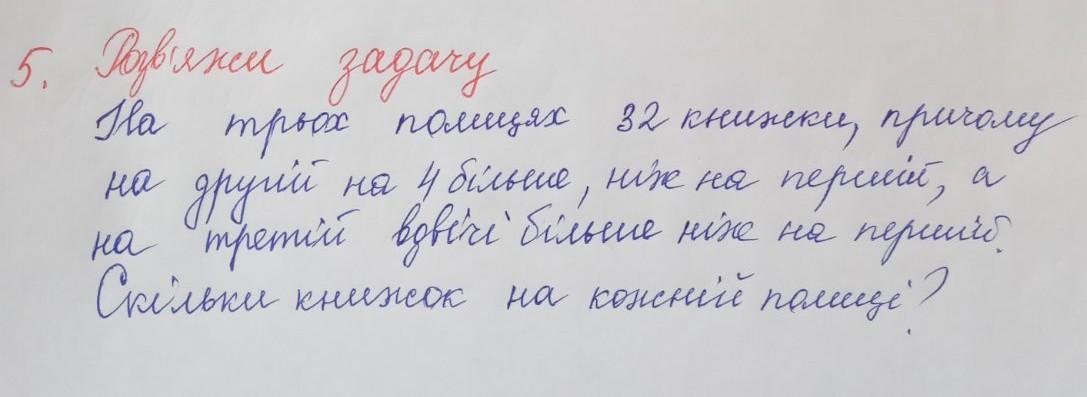 5. Розв'яжи задачу
На трьох полицях 32 книжки, причому
на другій на 4 більше, ніж на першій, а
на третій вдвічі більше ніж на першій.
Скільки книжок на кожній полиці?